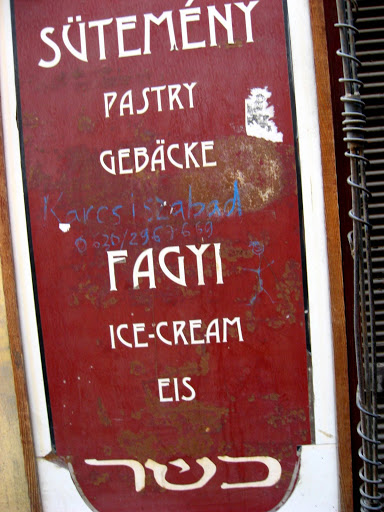 SÜTEMÉNY
PASTRY
GEBÄCKE
Karcsi szabad
FAGYI
ICE-CREAM
EIS
כשר